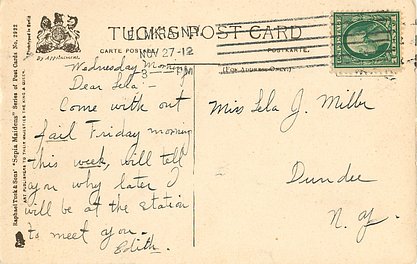 TUCK'S POST CARD
CARTE POSTALE
POSTKARTE.
NOV 27-12
3 - PM
(FOR ADDRESS ONLY.)
By Appointment
Raphael Tuck & Sons' "Sepia Maidens" Series of Post Cards, No. 2992
ART PUBLISHERS TO THEIR MAJESTIES THE KING & QUEEN.
Wednesday Morning
Dear Lela:-
Come with out
fail Friday morning
this week, will tell
you why later I
will be at the station
to meet you.
Edith.
Miss Lela J. Miller
Dundee
N. Y.